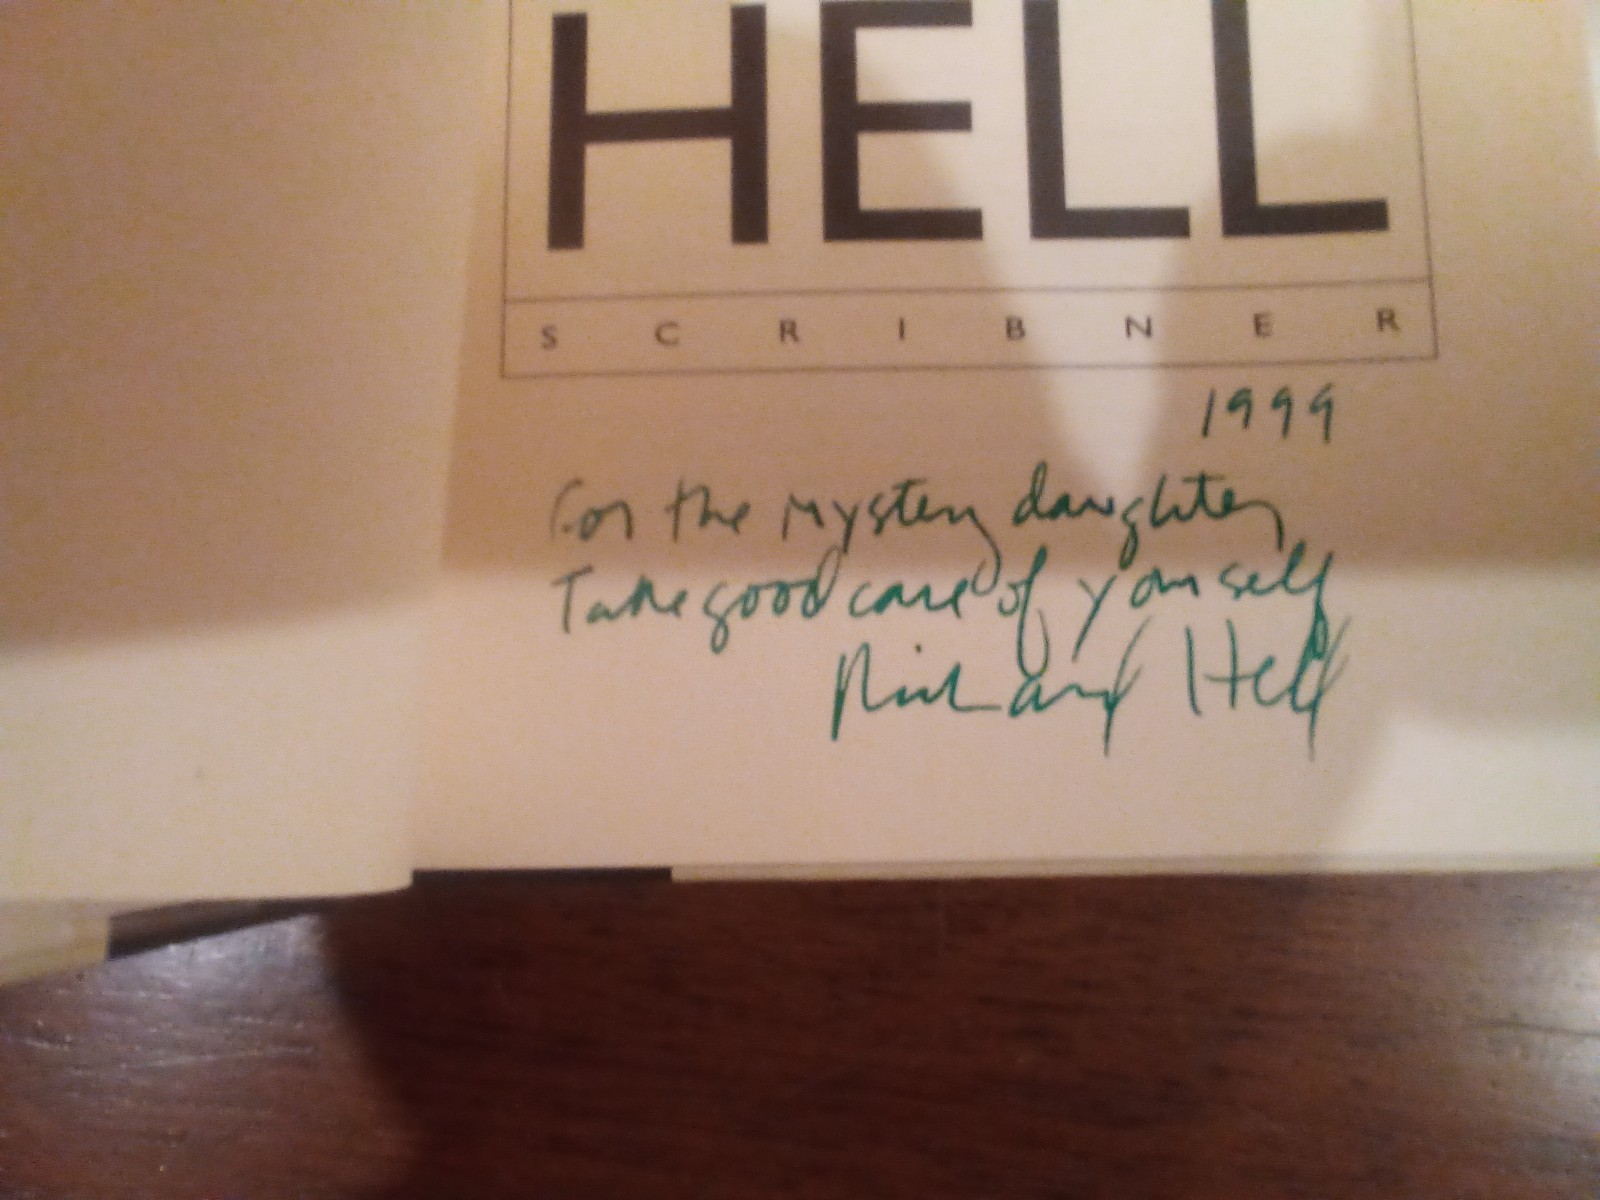 HELL
SCRIBNER
1999
For the mystery daughter
Take good care of yourself
Richard Hell